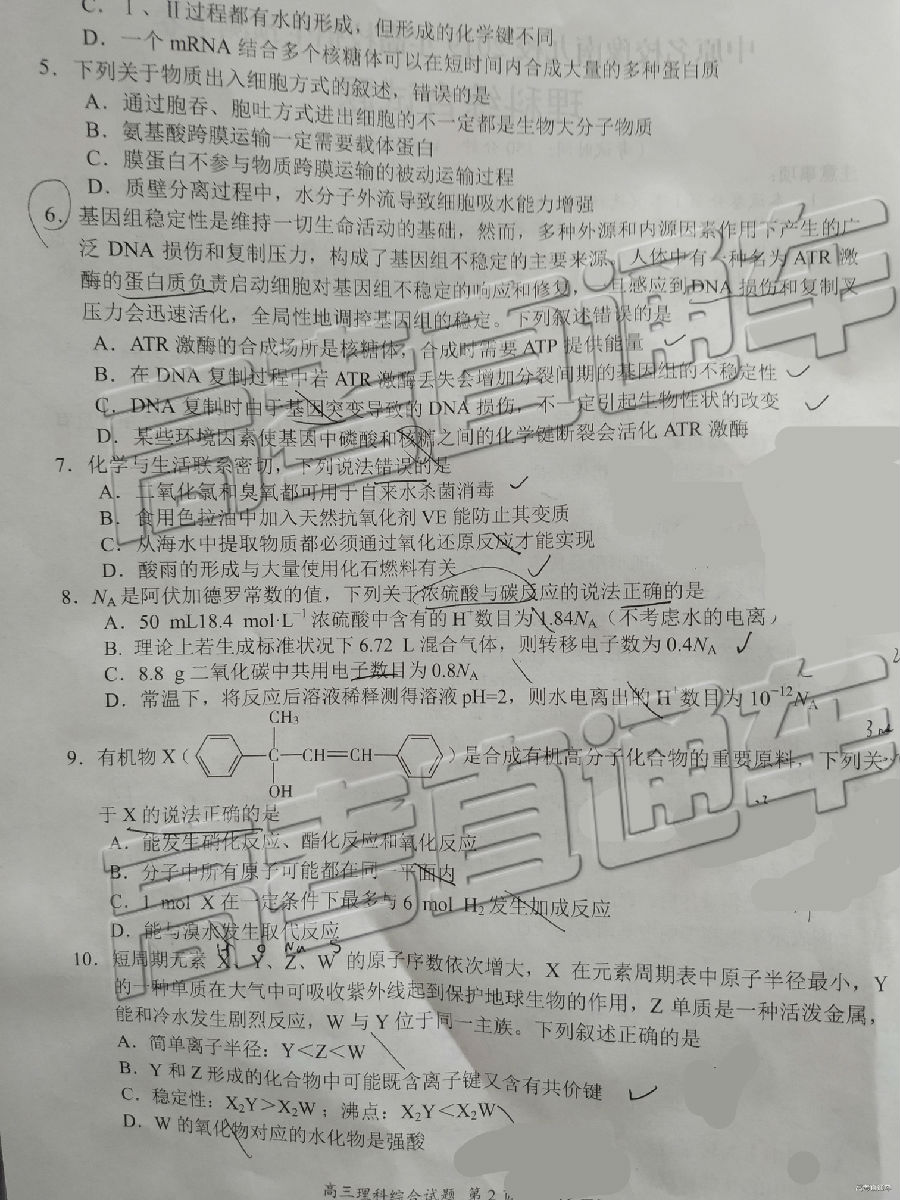 C．Ⅰ、Ⅱ过程都有水的形成，但形成的化学键不同
D．一个 mRNA 结合多个核糖体可以在短时间内合成大量的多种蛋白质
5．下列关于物质出入细胞方式的叙述，错误的是
A．通过胞吞、胞吐方式进出细胞的不一定都是生物大分子物质
B．氨基酸跨膜运输一定需要载体蛋白
C．膜蛋白不参与物质跨膜运输的被动运输过程
D．质壁分离过程中，水分子外流导致细胞吸水能力增强
6．基因组稳定性是维持一切生命活动的基础，然而，多种外源和内源因素作用下产生的广
泛 DNA 损伤和复制压力，构成了基因组不稳定的主要来源，人体中有一种名为 ATR 激
酶的蛋白质负责启动细胞对基因组不稳定的响应和修复，一旦感应到 DNA 损伤和复制叉
压力会迅速活化，全局性地调控基因组的稳定。下列叙述错误的是
A．ATR 激酶的合成场所是核糖体，合成时需要 ATP 提供能量
B．在 DNA 复制过程中若 ATR 激酶丢失会增加分裂间期的基因组的不稳定性
C．DNA 复制时由于基因突变导致的 DNA 损伤，不一定引起生物性状的改变
D．某些环境因素使基因中磷酸和核糖之间的化学键断裂会活化 ATR 激酶
7．化学与生活联系密切，下列说法错误的是
A．二氧化氯和臭氧都可用于自来水杀菌消毒
B．食用色拉油中加入天然抗氧化剂 VE 能防止其变质
C．从海水中提取物质都必须通过氧化还原反应才能实现
D．酸雨的形成与大量使用化石燃料有关
8．NA 是阿伏加德罗常数的值，下列关于浓硫酸与碳反应的说法正确的是
A．50 mL18.4 mol·L⁻¹ 浓硫酸中含有的 H⁺数目为 1.84NA（不考虑水的电离）
B. 理论上若生成标准状况下 6.72 L 混合气体，则转移电子数为 0.4NA
C．8.8 g 二氧化碳中共用电子数目为 0.8NA
D．常温下，将反应后溶液稀释测得溶液 pH=2，则水电离出的 H⁺数目为 10⁻¹²NA
CH₃
9．有机物 X（ C—CH=CH— ）是合成有机高分子化合物的重要原料，下列关
OH
于 X 的说法正确的是
A．能发生硝化反应、酯化反应和氧化反应
B．分子中所有原子可能都在同一平面内
C．1 mol X 在一定条件下最多与 6 mol H₂ 发生加成反应
D．能与溴水发生取代反应
H O Na S
10．短周期元素 X、Y、Z、W 的原子序数依次增大，X 在元素周期表中原子半径最小，Y
的一种单质在大气中可吸收紫外线起到保护地球生物的作用，Z 单质是一种活泼金属，
能和冷水发生剧烈反应，W 与 Y 位于同一主族。下列叙述正确的是
A．简单离子半径：Y＜Z＜W
B．Y 和 Z 形成的化合物中可能既含离子键又含有共价键
C．稳定性：X₂Y＞X₂W；沸点：X₂Y＜X₂W
D．W 的氧化物对应的水化物是强酸
高三理科综合试题 第 2
高考直通车
高考直通车